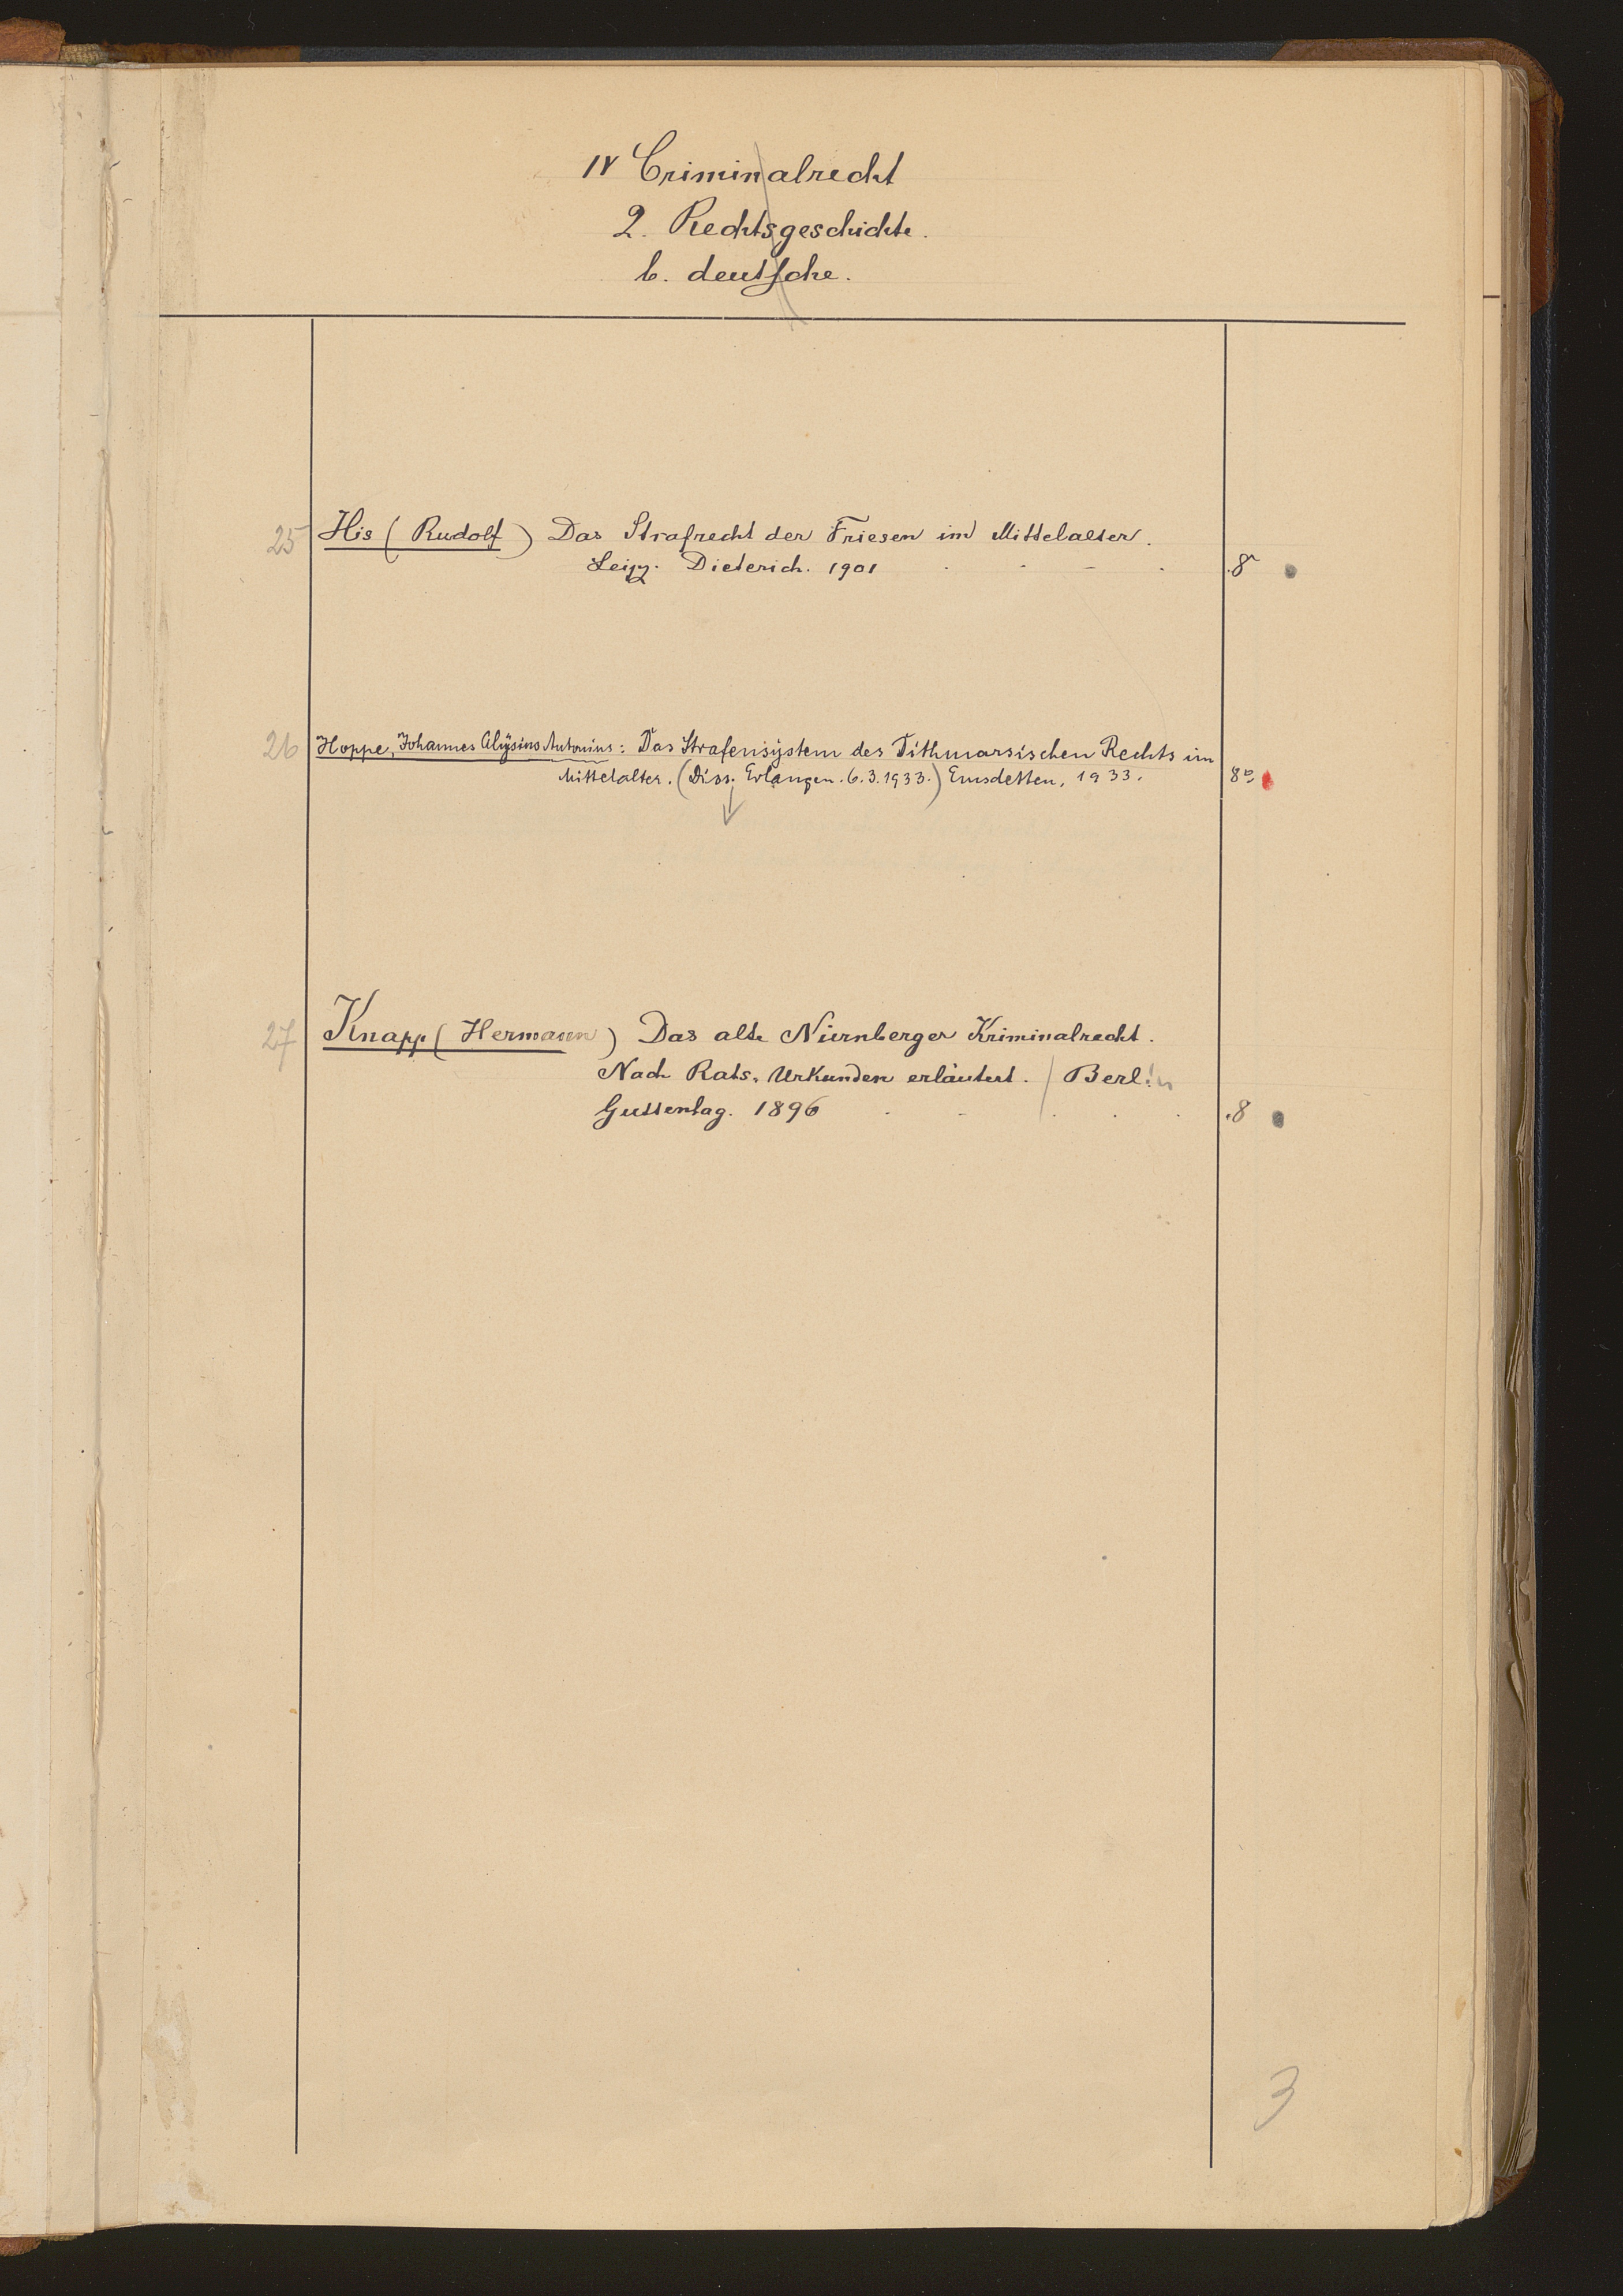 IV Criminalrecht
2. Rechtsgeschichte.
b. deutsche.
25 His (Rudolf) Das Strafrecht der Friesen im Mittelalter.
Leipz. Dieterich. 1901 . 8
26 Hoppe, Johannes Aloysius Antonius: Das Strafensystem des Dithmarsischen Rechts im
Mittelalter. (Diss. Erlangen. 6.3.1933.) Emsdetten, 1933. 8º
27 Knapp (Hermann) Das alte Nürnberger Kriminalrecht.
Nach Rats-Urkunden erläutert. / Berlin
Guttentag. 1896 . 8
3